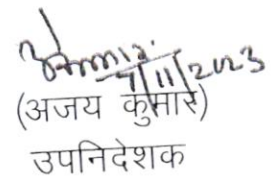 7/11/2023
(अजय कुमार)
उपनिदेशक